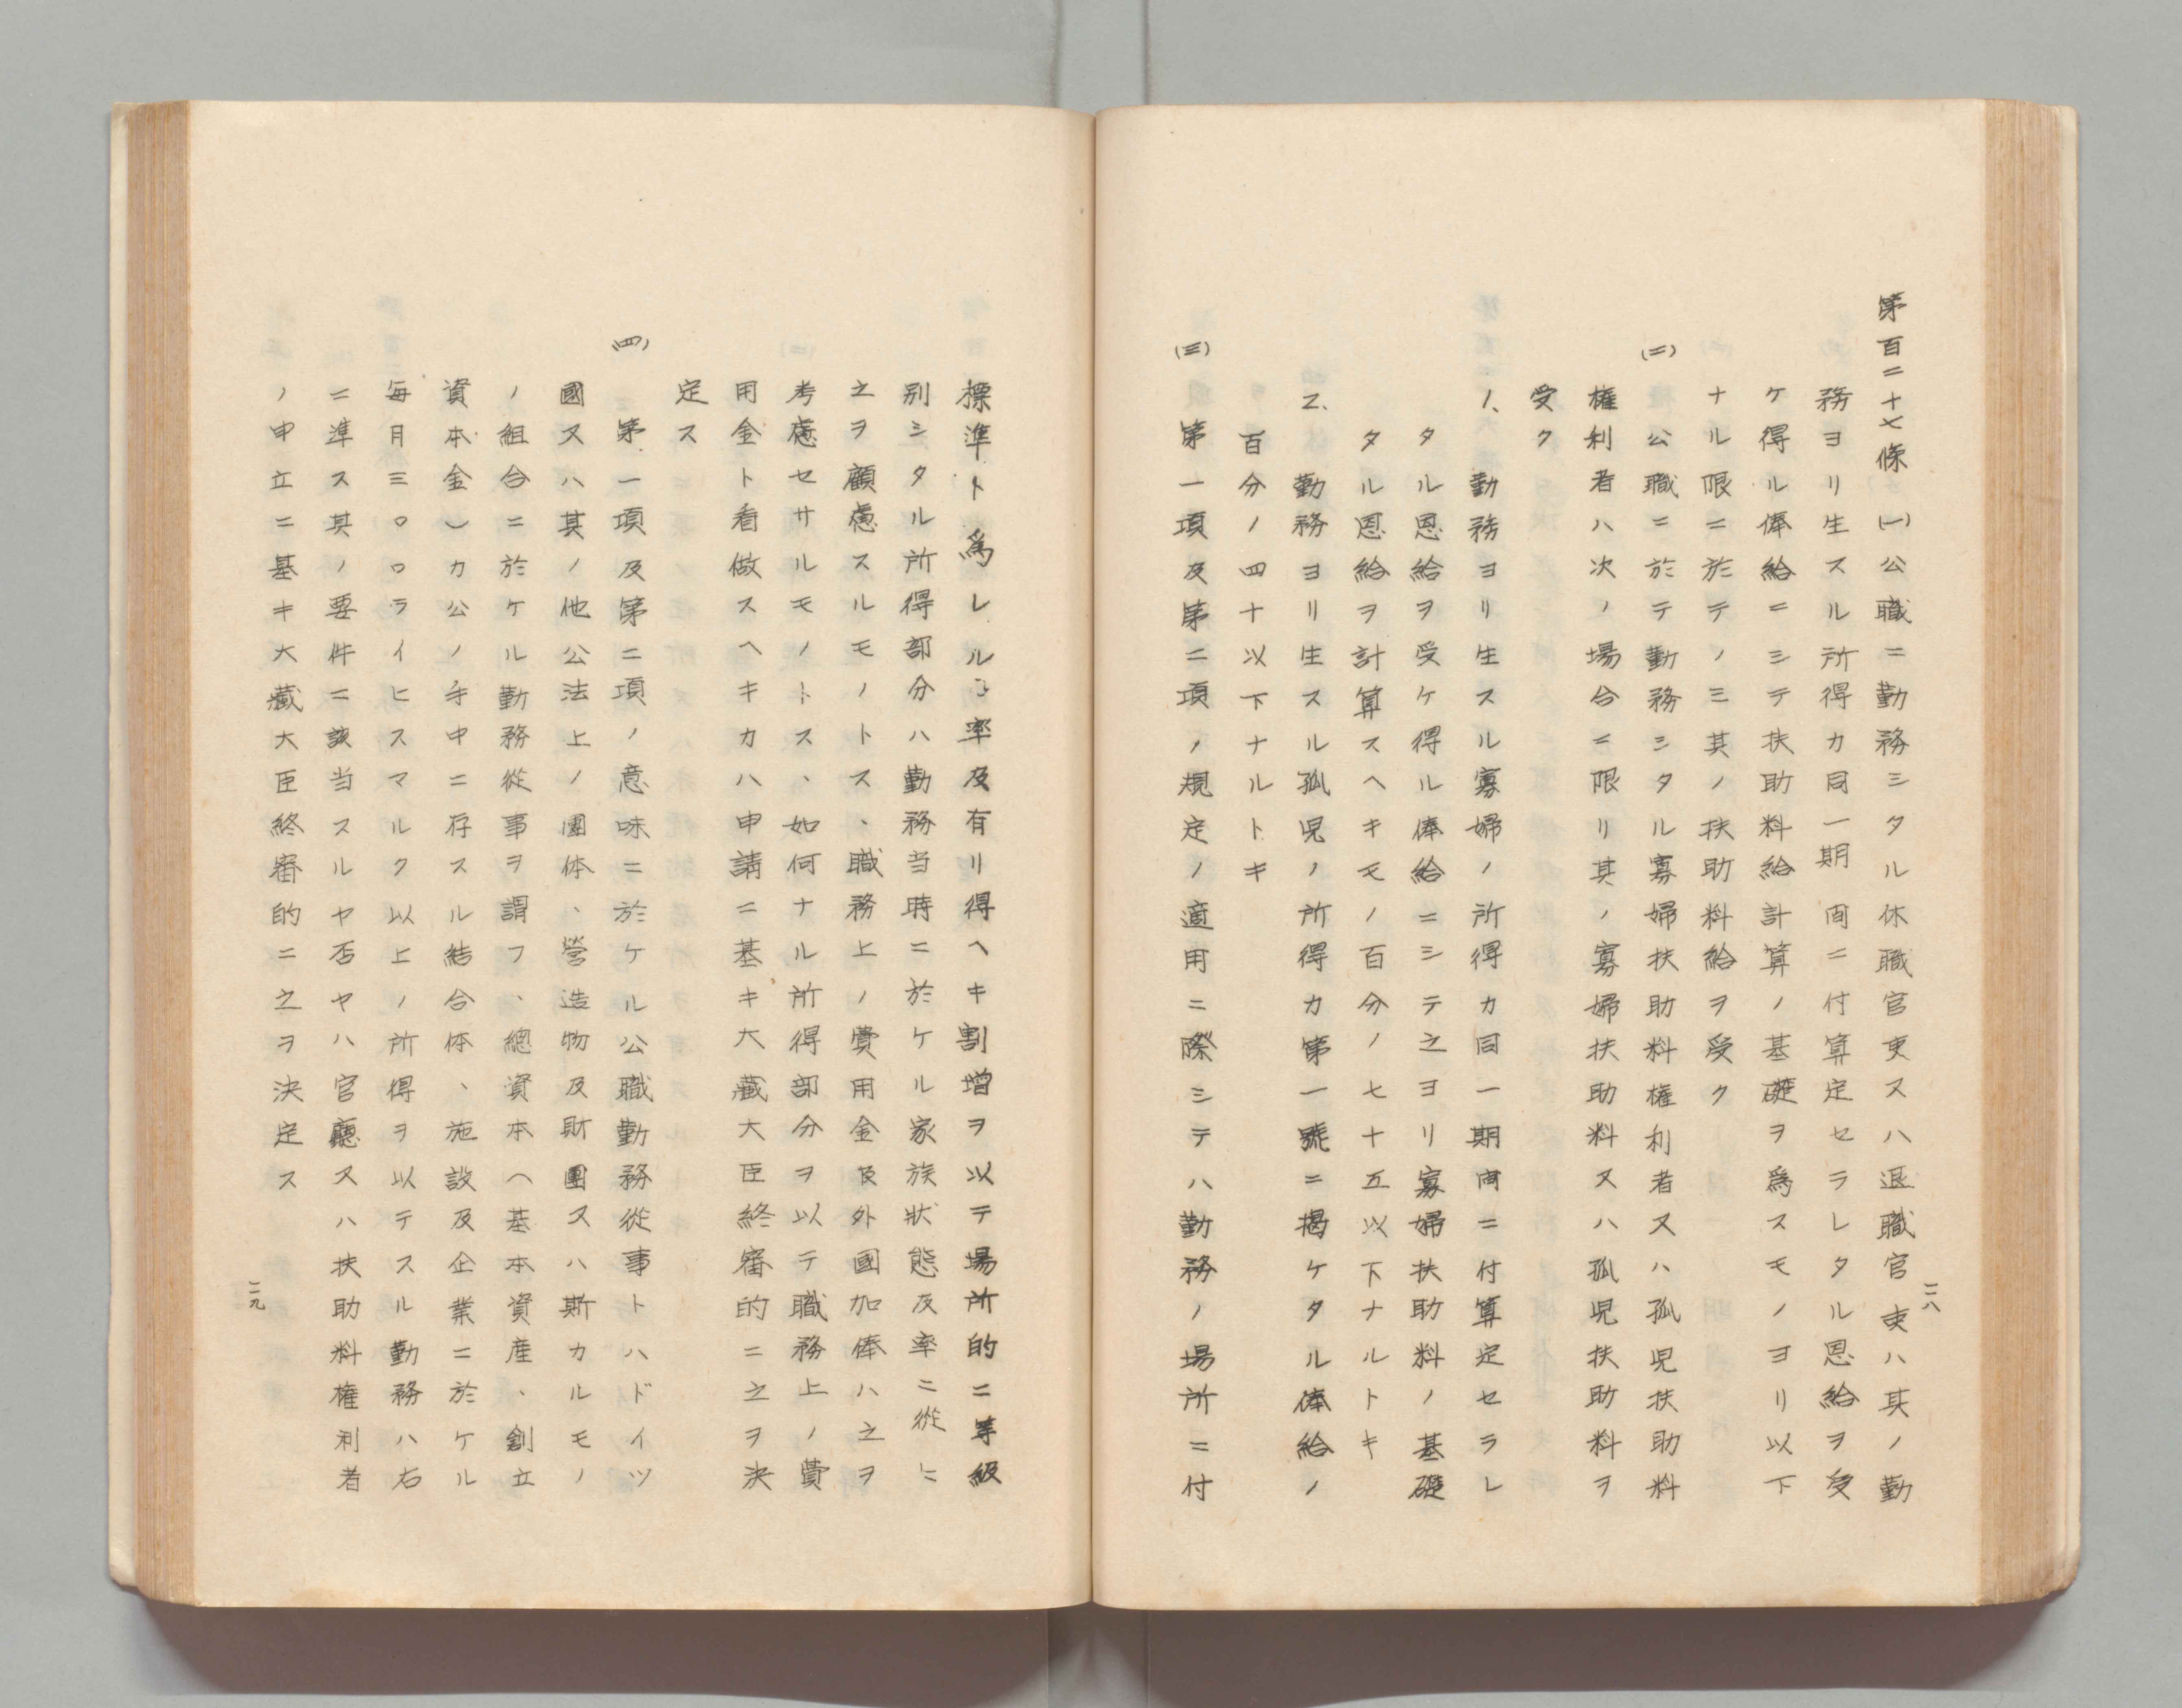 第百二十七條(一)公職ニ勤務シタル休職官吏又ハ退職官吏ハ其ノ勤
務ヨリ生スル所得カ同一期間ニ付算定セラレタル恩給ヲ受
ケ得ル俸給ニシテ扶助料給計算ノ基礎ヲ為スモノヨリ以下
ナル限ニ於テノミ其ノ扶助料給ヲ受ク
(二)公職ニ於テ勤務シタル寡婦扶助料権利者又ハ孤児扶助料
権利者ハ次ノ場合ニ限リ其ノ寡婦扶助料又ハ孤児扶助料ヲ
受ク
1、勤務ヨリ生スル寡婦ノ所得カ同一期間ニ付算定セラレ
タル恩給ヲ受ケ得ル俸給ニシテ之ヨリ寡婦扶助料ノ基礎
タル恩給ヲ計算スヘキモノ百分ノ七十五以下ナルトキ
2、勤務ヨリ生スル孤児ノ所得カ第一號ニ掲ケタル俸給ノ
百分ノ四十以下ナルトキ
(三)第一項及第二項ノ規定ノ適用ニ際シテハ勤務ノ場所ニ付
二八
標準ト為レル率及有リ得ヘキ割増ヲ以テ場所的ニ等級
別シタル所得部分ハ勤務当時ニ於ケル家族狀態及率ニ從ヒ
之ヲ顧慮スルモノトス、職務上ノ費用金及外國加俸ハ之ヲ
考慮セサルモノトス、如何ナル所得部分ヲ以テ職務上ノ費
用金ト看做スヘキカハ申請ニ基キ大藏大臣終審的ニ之ヲ決
定ス
(四)第一項及第二項ノ意味ニ於ケル公職勤務從事トハドイツ
國又ハ其ノ他公法上ノ團体、營造物及財團又ハ斯カルモノ
ノ組合ニ於ケル勤務從事ヲ謂フ、總資本(基本資産、創立
資本金)カ公ノ手中ニ存スル結合体、施設及企業ニ於ケル
每月三〇〇ライヒスマルク以上ノ所得ヲ以テスル勤務ハ右
ニ準ス其ノ要件ニ該当スルヤ否ヤハ官廳又ハ扶助料権利者
ノ申立ニ基キ大藏大臣終審的ニ之ヲ決定ス
二九